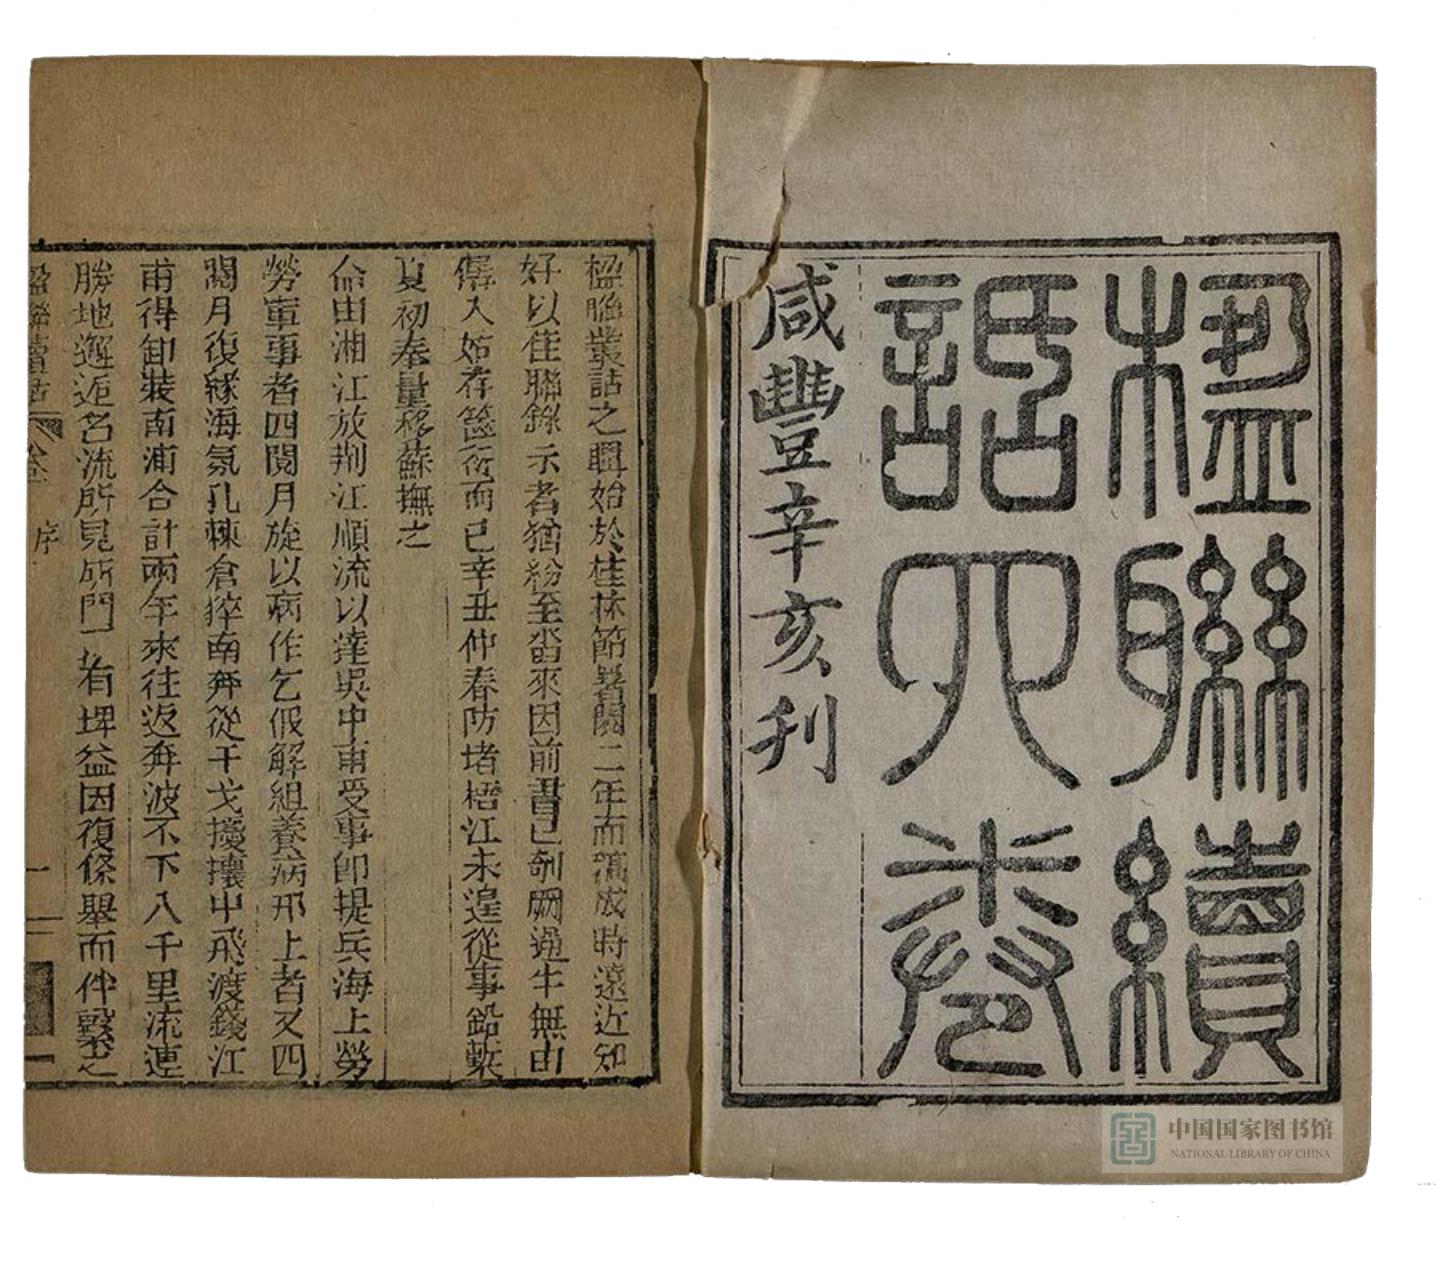 楹聯續
話四卷
咸豐辛亥刊
楹聯叢話之輯始於桂林節署閱二年而藁成時遠近知
好以佳聯錄示者猶紛至沓來因前書已刻闕過半無由
人姑存篋衍而已辛丑仲春防堵梧江未遑從事鉛槧
夏初奉量移蘇撫之
命由湘江放荆江順流以達吳中甫受事即提兵海上勞
勞軍事者四閱月旋以病作乞假解組養病邗上者又四
閱月復緣海氛孔棘倉猝南奔從干戈擾攘中飛渡錢江
甫得卸裝南浦合計兩年來往返奔波不下八千里流連
勝地邂逅名流所見所聞有裨益因復條舉而件繫之
楹聯續話 序 一
中国国家图书馆
NATIONAL LIBRARY OF CHINA